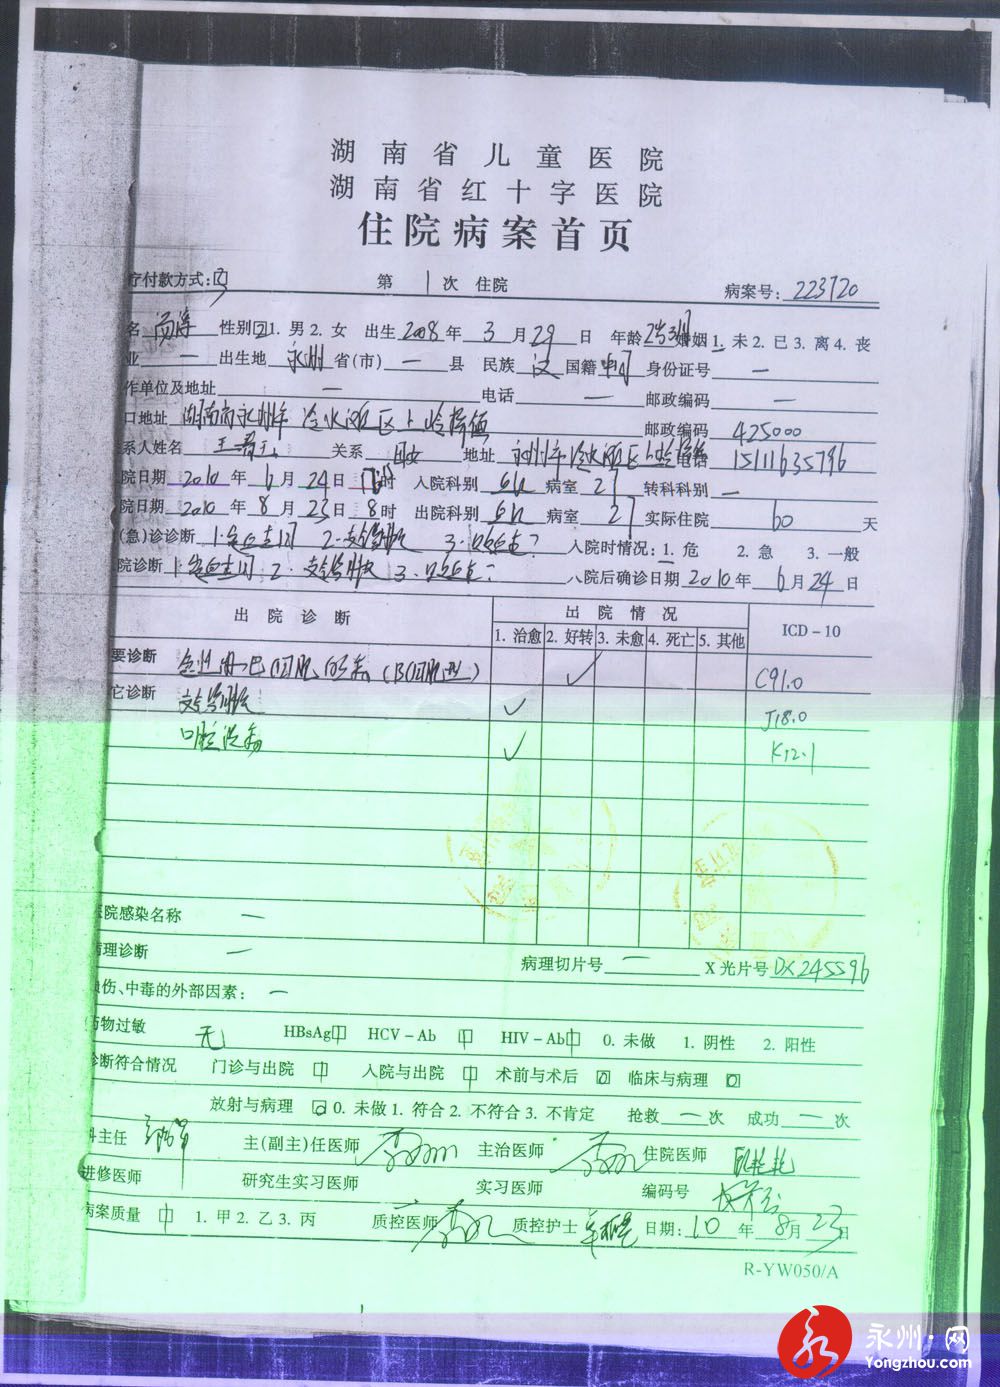 湖南省儿童医院
湖南省红十字医院
住院病案首页
疗付款方式: 第 1 次 住院 病案号: 223720
名 性别 2 1. 男 2. 女 出生 2008 年 3 月 29 日 年龄 婚姻 1. 未 2. 已 3. 离 4. 丧
业 — 出生地 永州 省(市) — 县 民族 汉 国籍 中国 身份证号 —
作单位及地址 — 电话 — 邮政编码 —
口地址 湖南省永州市 冷水滩区上岭桥镇 邮政编码 425000
系人姓名 关系 母女 地址 永州市冷水滩区上岭桥镇 电话 15111635796
院日期 2010 年 6 月 24 日 时 入院科别 病室 27 转科科别 —
院日期 2010 年 8 月 23 日 8 时 出院科别 病室 27 实际住院 60 天
(急)诊诊断 1. 2. 支气管肺炎 3. 入院时情况: 1. 危 2. 急 3. 一般
院诊断 1. 2. 支气管肺炎 3. 入院后确诊日期 2010 年 6 月 24 日
出院诊断 出院情况 ICD-10
1. 治愈 2. 好转 3. 未愈 4. 死亡 5. 其他
要诊断 急性淋巴细胞白血病 (B细胞型) ✓ C91.0
它诊断 支气管肺炎 ✓ J18.0
口腔炎 ✓ K12.1
医院感染名称 —
病理诊断 — 病理切片号 — X光片号 DX245596
损伤、中毒的外部因素: —
药物过敏 无 HBsAg HCV-Ab HIV-Ab 0. 未做 1. 阴性 2. 阳性
诊断符合情况 门诊与出院 入院与出院 术前与术后 0 临床与病理 0
放射与病理 0 0. 未做 1. 符合 2. 不符合 3. 不肯定 抢救 — 次 成功 — 次
科主任 主(副主)任医师 主治医师 住院医师
进修医师 研究生实习医师 实习医师 编码号
病案质量 1. 甲 2. 乙 3. 丙 质控医师 质控护士 日期: 10 年 8 月 23 日
R-YW050/A
永州·网
Yongzhou.com